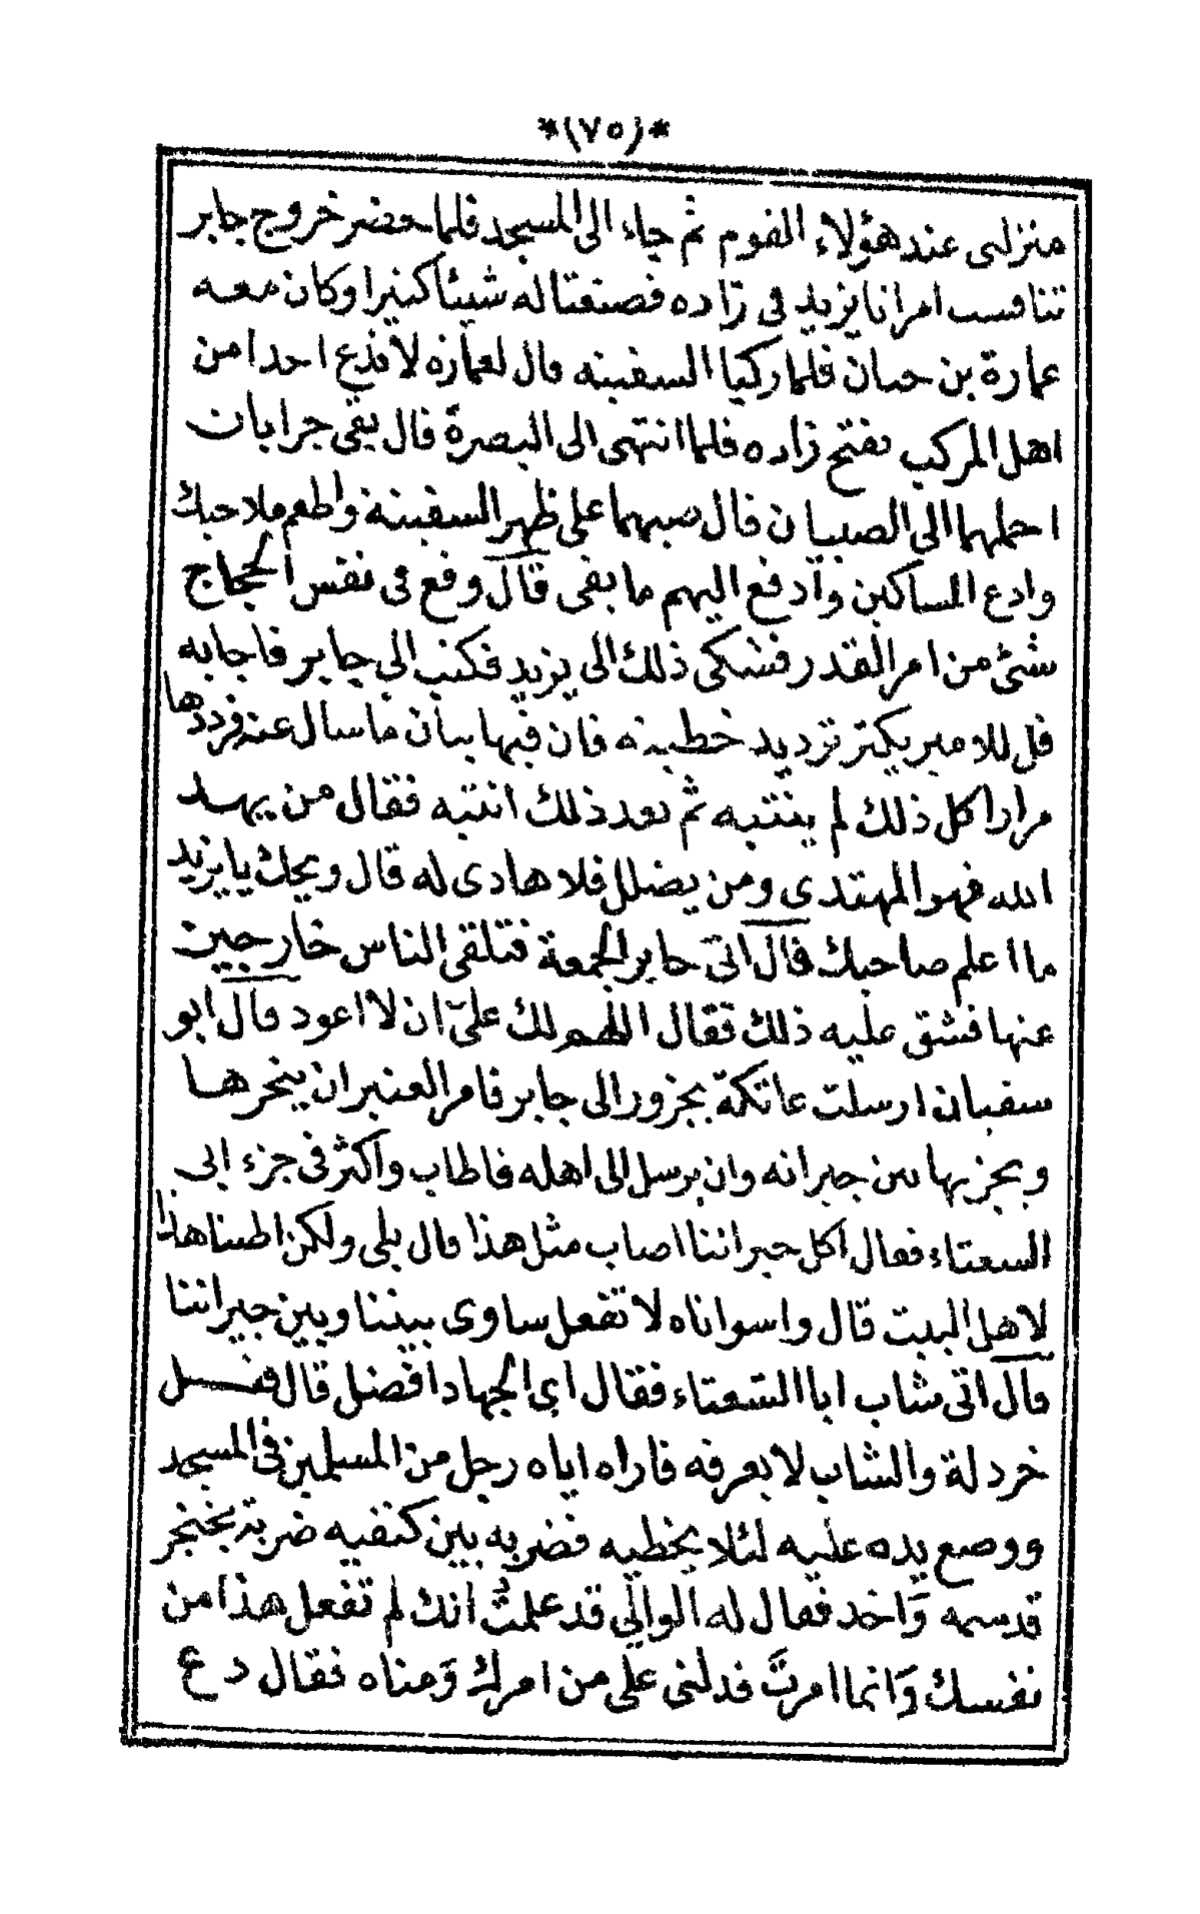 *(٧٥)*
منزلى عند هؤلاء القوم ثم جاء الى المسجد فلما حضر خروج جابر
تنافست امرانا يزيد فى زاده فصنعتا له شيئا كثيرا وكان معه
عمارة بن حيان فلما ركبا السفينه قال لعماره لا تدع احدا من
اهل المركب يفتح زاده فلما انتهى الى البصرة قال بقى جرابان
احملهما الى الصبيان قال صبهما على ظهر السفينة واطعم ملاحيك
وادع المساكين وادفع اليهم ما بقى قال وقع فى نفس الحجاج
شئ من امر القدر فشكى ذلك الى يزيد فكتب الى جابر فاجابه
قل للامير يكثر ترديد خطبته فان فيها بيان ما سال عنه فرددها
مرارا كل ذلك لم ينتبه ثم بعد ذلك انتبه فقال من يهد
الله فهو المهتدى ومن يضلل فلا هادى له قال ويحك يا يزيد
ما اعلم صاحبك قال اتى جابر الجمعة فتلقى الناس خارجين
عنها فشق عليه ذلك فقال اللهم لك علىّ ان لا اعود قال ابو
سفيان ارسلت عاتكة بجزور الى جابر فامر العنبر ان ينحرها
ويجزيها بين جيرانه وان يرسل الى اهله فاطاب واكثر فى جزء ابى
الشعثاء فقال اكل جيراننا اصاب مثل هذا قال بلى ولكن اطبنا هذا
لاهل البيت قال واسواتاه لا تفعل ساوى بيننا وبين جيراننا
قال اتى شاب ابا الشعثاء فقال اى الجهاد افضل قال قتل
خردلة والشاب لا يعرفه فاراه اياه رجل من المسلمين فى المسجد
ووضع يده عليه لئلا يخطيه فضربه بين كتفيه ضربة بخنجر
قد سمه وَاخذ فقال له الوالى قد علمتُ انك لم تفعل هذا من
نفسك وَانما امرتَ فدلنى على من امرك وَمناه فقال دع